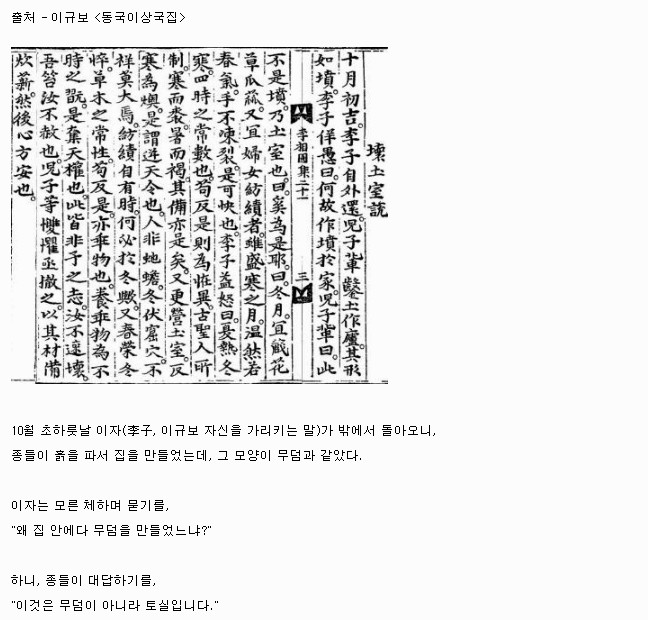 출처 - 이규보 <동국이상국집>
壞土室說
十月初吉。李子自外還。兒子輩鑿土作廬。其形
如墳。李子佯愚曰。何故作墳於家。兒子輩曰。此
李相國集二十一 三
不是墳。乃土室也。曰。奚為是耶。曰。冬月。宜藏花
草瓜蓏。又宜婦女紡績者。雖盛寒之月。溫然若
春氣。手不凍裂。是可快也。李子益怒曰。夏熱冬
寒。四時之常數也。苟反是則為怪異。古聖人所
制。寒而裘。暑而褐。其備亦足矣。又更營土室。反
寒為燠。是謂逆天令也。人非虵蟾。冬伏窟穴。不
祥莫大焉。紡績自有時。何必於冬歟。又春榮冬
悴。草木之常性。苟反是。亦乖物也。養乖物為不
時之翫。是奪天權也。此皆非予之志。汝不速壞。
吾笞汝不赦也。兒子等戄懼亟撤之。以其材備
炊薪。然後心方安也。
10월 초하룻날 이자(李子, 이규보 자신을 가리키는 말)가 밖에서 돌아오니,
종들이 흙을 파서 집을 만들었는데, 그 모양이 무덤과 같았다.
이자는 모른 체하며 묻기를,
"왜 집 안에다 무덤을 만들었느냐?"
하니, 종들이 대답하기를,
"이것은 무덤이 아니라 토실입니다."